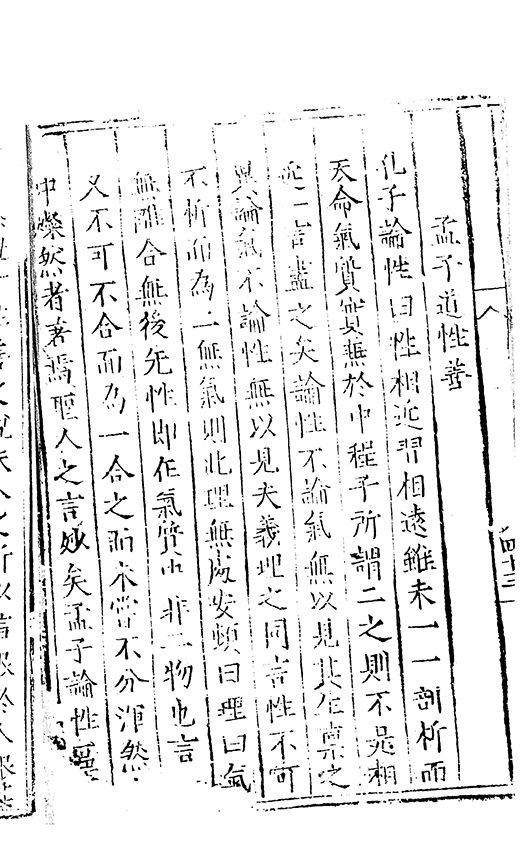 八
四十三
孟子道性善
孔子論性曰性相近習相遠雖未一一剖析而
天命氣質實兼於中程子所謂二之則不是相
近一言盡之矣論性不論氣無以見其生稟之
異論氣不論性無以見夫義理之同言性不可
不析而為二無氣則此理無處安頓曰理曰氣
無離合無後先性即在氣質中非二物也言
又不可不合而為一合之而未嘗不分渾然
中燦然者著焉聖人之言妙矣孟子論性